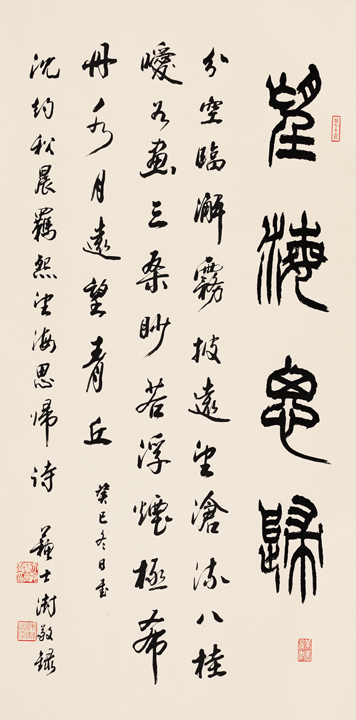 望海思歸
分空臨澥霧披遠望滄流八桂
曖如畫三桑眇若浮煙極希
丹水月遠望青丘 癸巳冬日書
沈約秋晨羈怨望海思歸詩 蘇士澍敬錄